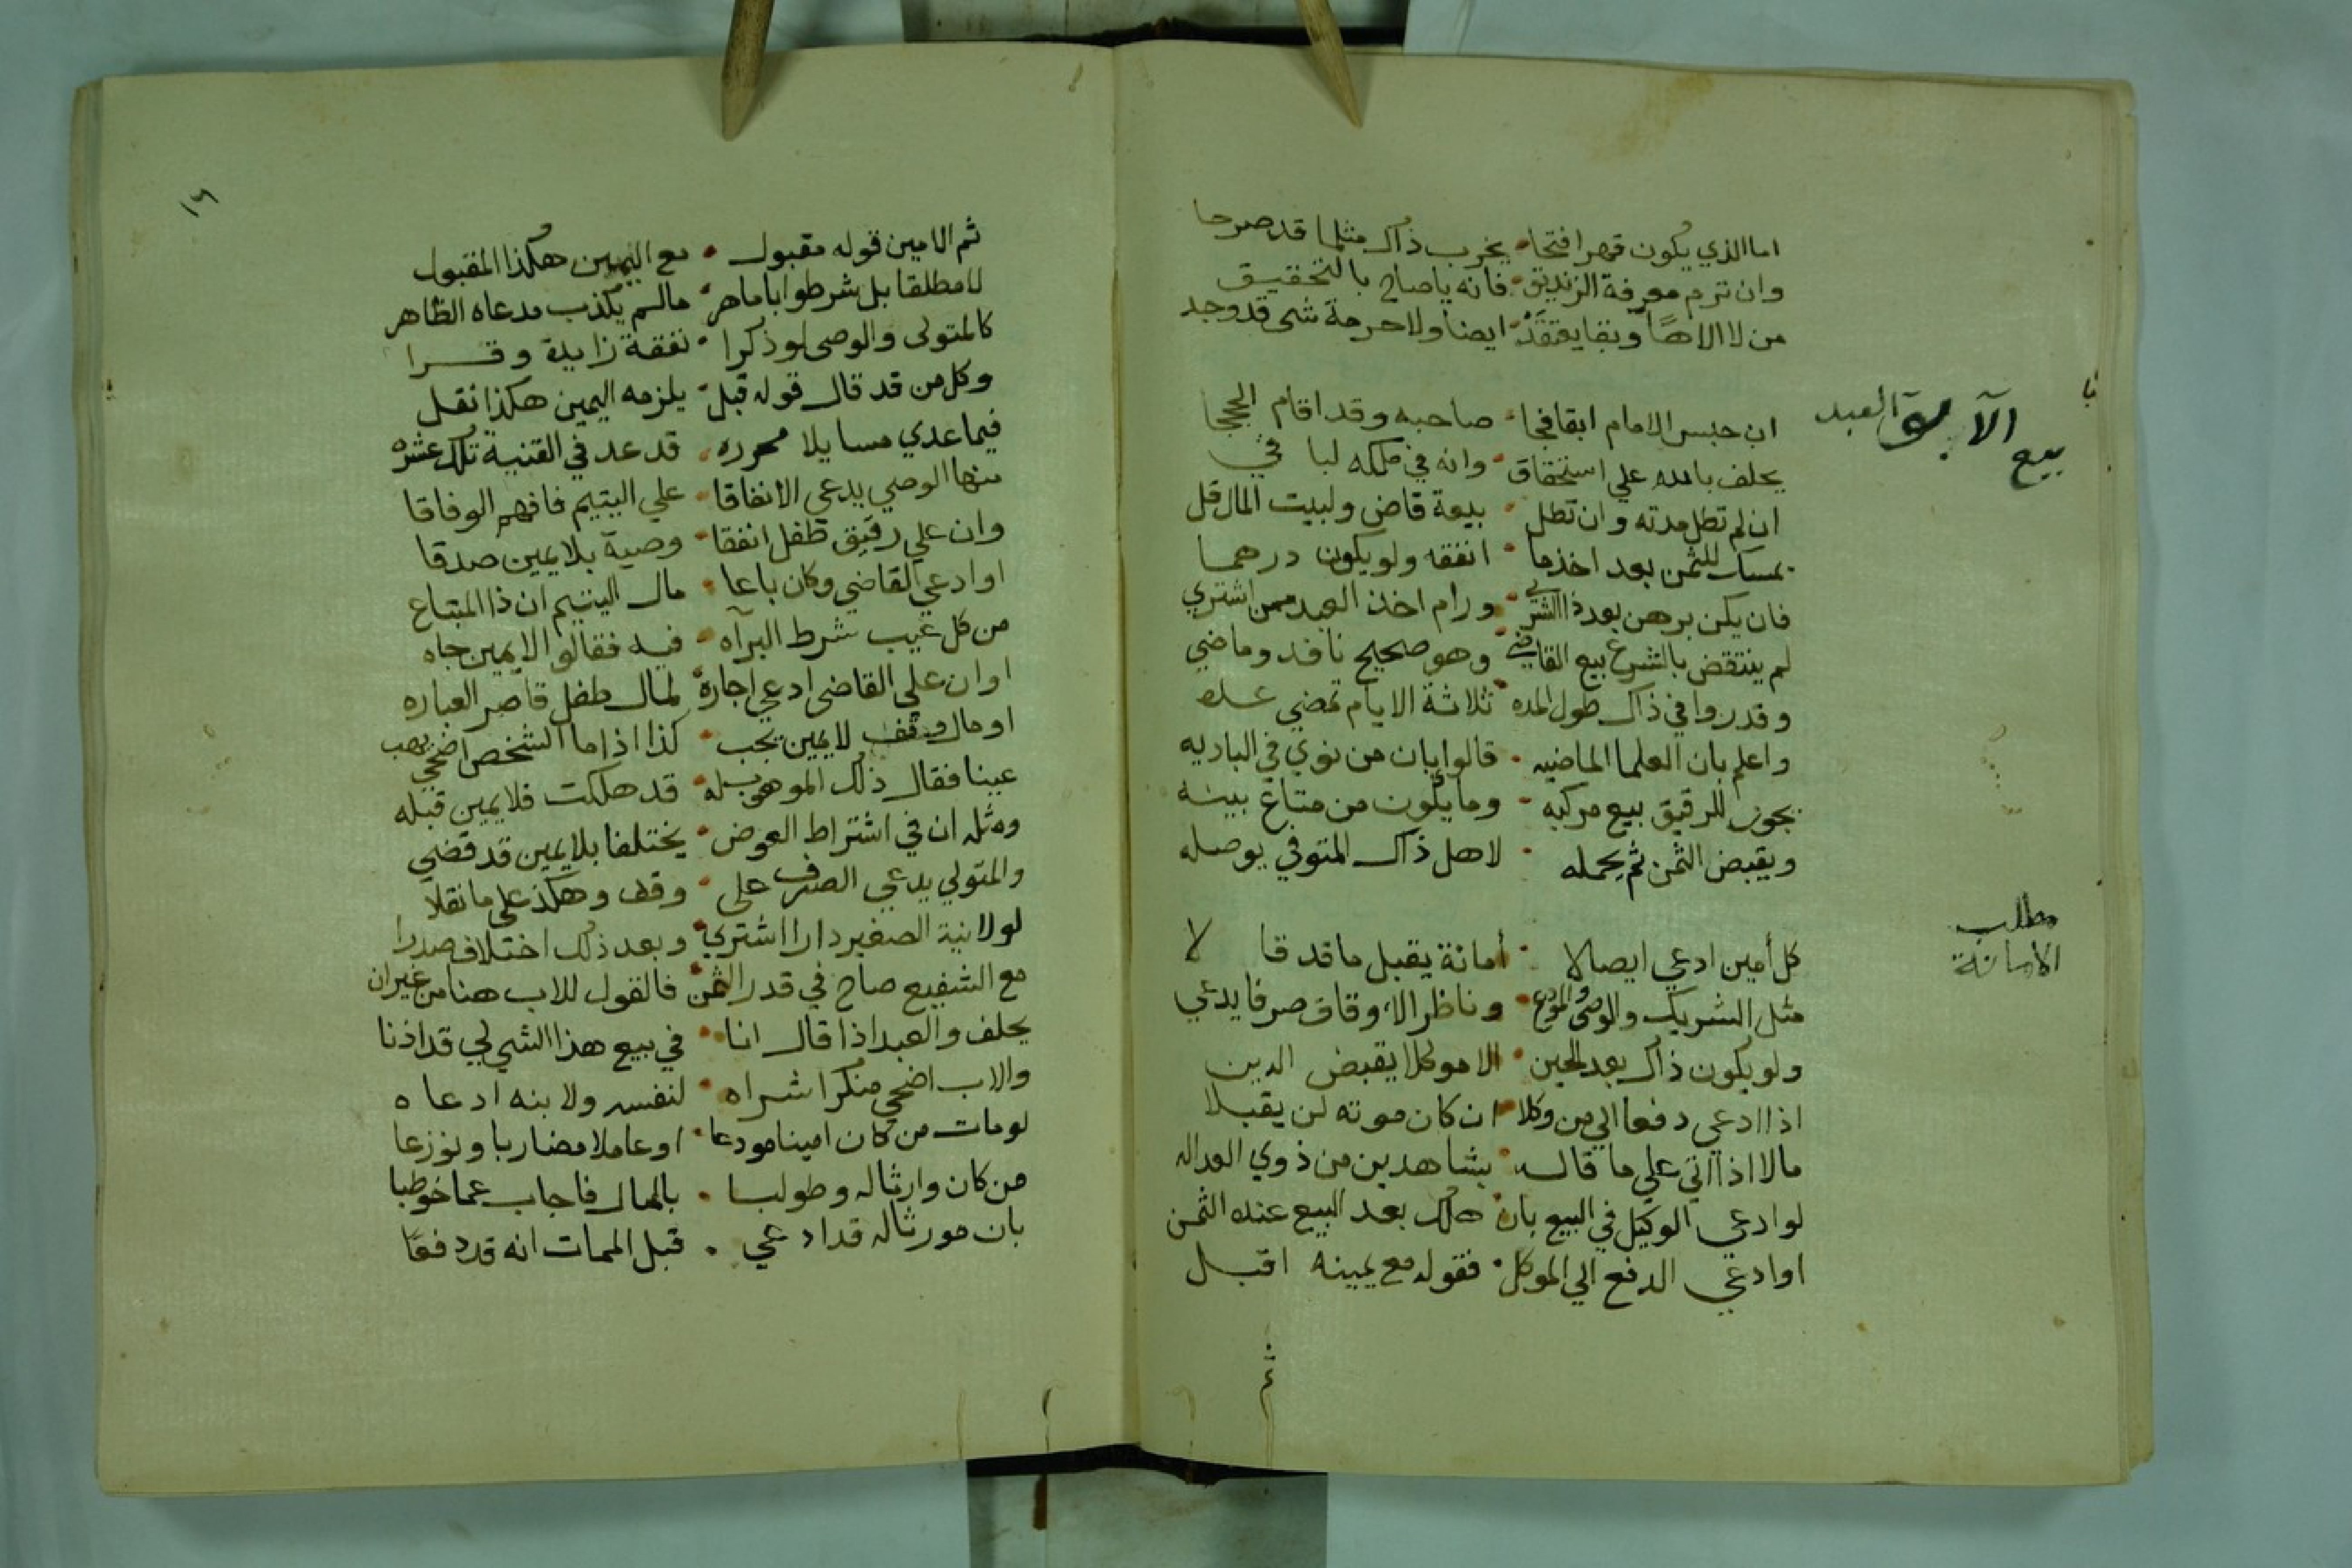 اما الذي يكون قهرا فتحا • يخرب ذاك مثلما قد صرحا
وان ترم معرفة الزنديق • فانه ياصاح بالتحقيق
من لا الاها وبقا يعتقد • ايضا ولا حرمة شي قد وجد
بيع الآبق العبد
ان حبس الامام ابقا فجا • صاحبه وقد اقام الحججا
يحلف بالله علي استحقاق • وانه في ملكه لباقي
ان لم تطل مدته وان تطل • بيعة قاض ولبيت المال قل
يمسك للثمن بعد اخذ ما • انفقه ولو يكون درهما
فان يكن برهن بعد ذا الشري • ورام اخذ العبد ممن اشتري
لم ينتقض بالشرع بيع القاضي • وهو صحيح نافد وماضي
وقدروا في ذاك طول المده • ثلاثة الايام تمضي عده
واعلم بان العلما الماضيه • قالوا بان من توي في الباديه
يجوز للرقيق بيع مركبه • وما يكون من متاع بيته
ويقبض الثمن ثم يحمله • لاهل ذاك المتوفي يوصله
مطلب
الامانة
كل أمين ادعي ايصالا • أمانة يقبل ما قد قا لا
مثل الشريك والوصي والمودع • وناظر الاوقاف صرفا يدعي
ولو يكون ذاك بعد الحين • الا موكلا يقبض الدين
اذا ادعي دفعا الي من وكلا • ان كان موته لن يقبلا
مالا اذا اتي علي ما قاله • بشاهدين من ذوي العداله
لو ادعي الوكيل في البيع بان • هلك بعد البيع عنده الثمن
او ادعي الدفع الي الموكل • فقوله مع يمينه اقبل
ثم
١٤
ثم الامين قوله مقبول • مع اليمين هكذا المقبول
لا مطلقا بل شرطوا اياماهر • مالم يكذب مدعاه الظاهر
كالمتولى والوصي لو ذكرا • نفقة زايدة وقرا
وكل من قد قال قوله قبل • يلزمه اليمين هكذا نقل
فيما عدي مسايلا محرره • قد عد في القنية تلك عشره
منها الوصي يدعي الانفاقا • علي اليتيم فافهم الوفاقا
وان علي رقيق طفل انفقا • وصية بلا يمين صدقا
او ادعي القاضي وكان باعا • مال اليتيم ان ذا المبتاع
من كل عيب شرط البرآه • فيه فقالو الا يمين جاه
او ان علي القاضي ادعي اجارة • لمال طفل قاصر العباره
او مال وقف لا يمين يجب • كذا اذا ما الشخص اضحي يهب
عينا فقال ذلك الموهوب له • قد هلكت فلا يمين قبله
ومثله ان في اشتراط العوض • يختلفا بلا يمين قد قضي
والمتولي يدعي الصرف على • وقف وهكذ علي ما نقلا
لو لابنه الصغير دارا اشتري • وبعد ذلك اختلاف صدرا
مع الشفيع صاح في قدر الثمن • فالقول للاب هنا من غير ان
يحلف والعبد اذا قال انا • في بيع هذا الشي لي قد اذنا
والاب اضحي منكرا شراه • لنفسه ولابنه ادعاه
لو مات من كان امينا مودعا • او عاملا مضاربا ونوزعا
من كان وارثا له وطولبا • بالمال فاجاب عما خوطبا
بان مورثا له قد ادعي • قبل الممات انه قد دفعا